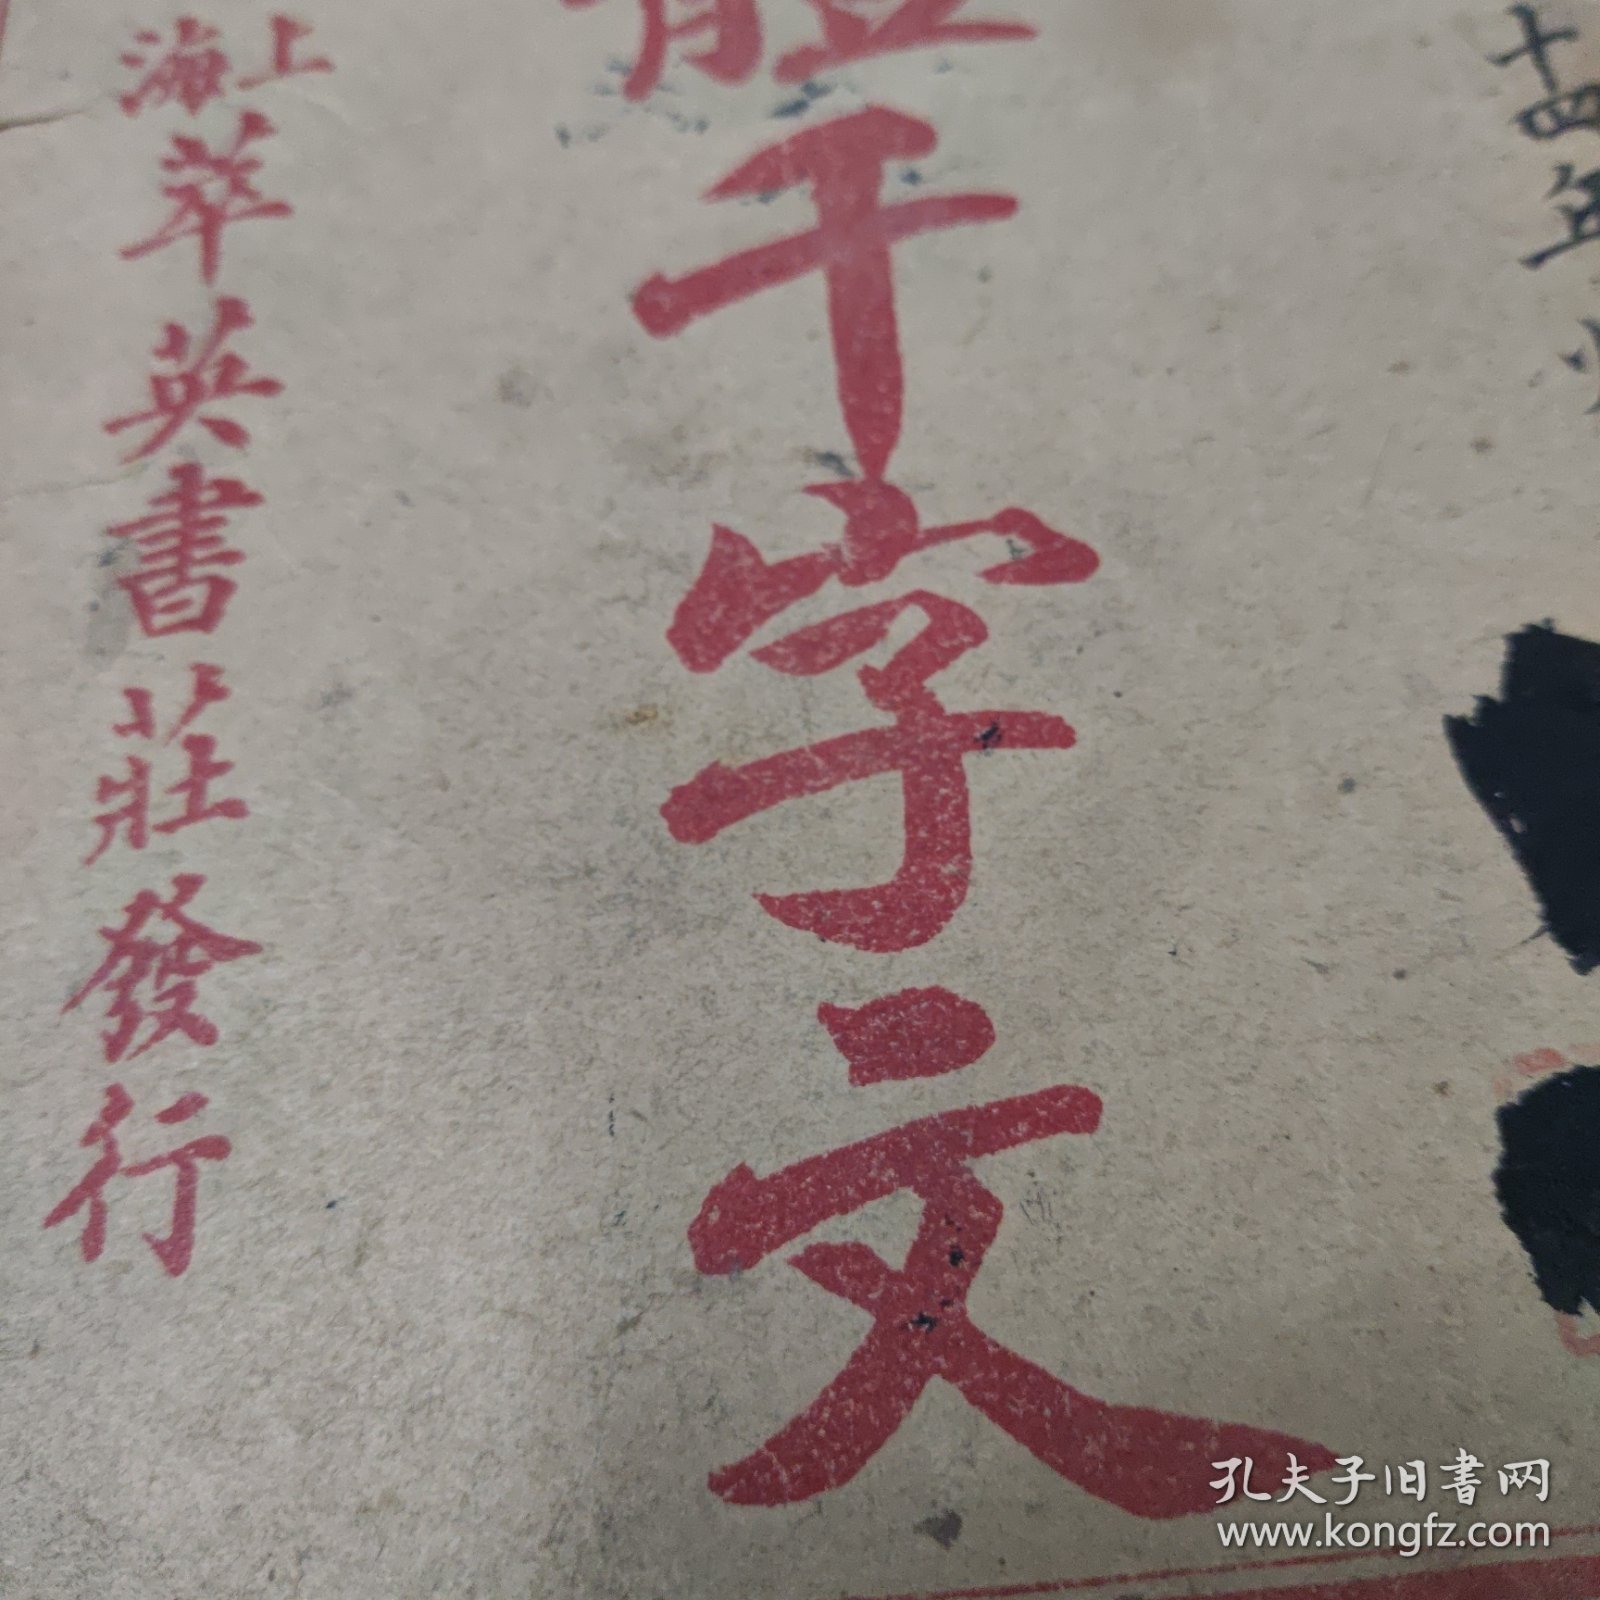 十四年
體千字文
上海萃英書莊發行
孔夫子旧书网
www.kongfz.com